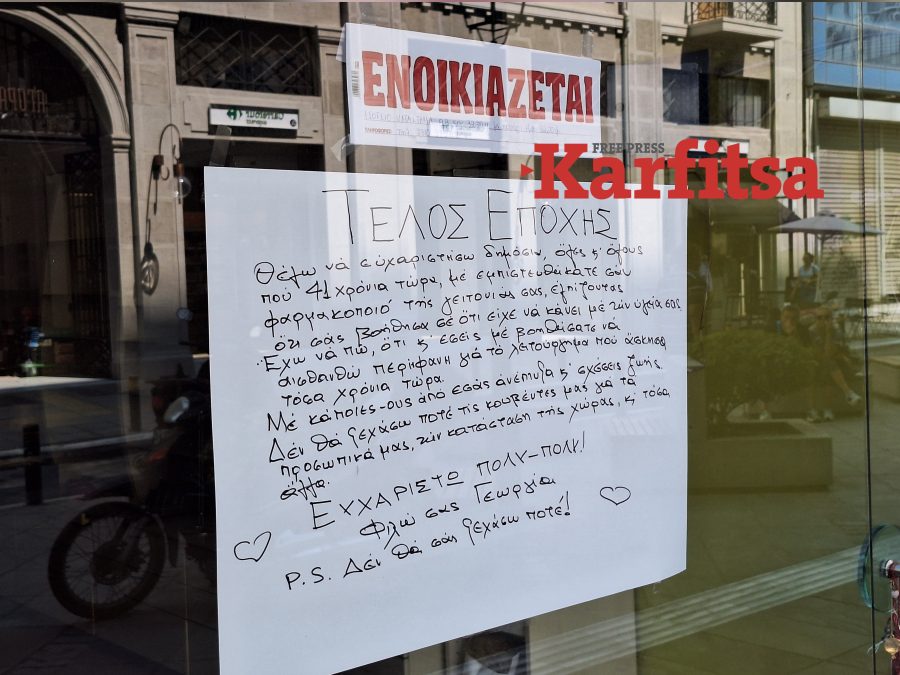 ΕΝΟΙΚΙΑΖΕΤΑΙ
FREE PRESS
Karfitsa
ΤΕΛΟΣ ΕΠΟΧΗΣ
Θέλω νά εὐχαριστήσω δημόσια, ὅλες κ' ὅλους
πού 41 χρόνια τώρα, μέ εμπιστευθήκατε σάν
φαρμακοποιό τῆς γειτονιάς σας, ἐλπίζοντας
ὅτι σᾶς βοήθησα σέ ὅτι είχε νά κάνει μέ τήν ὑγεία σας
Έχω νά πῶ, ὅτι κ' ἐσεῖς μέ βοηθήσατε νά
αισθανθῶ περήφανη γιά τό λειτούργημα πού ἄσκησα
τόσα χρόνια τώρα.
Μέ κάποιες-ους ἀπό εσᾶς ἀνέπτυξα κ' σχέσεις ζωής.
Δέν θά ξεχάσω ποτέ τίς κουβέντες μας γιά τά
προσωπικά μας, τήν κατάσταση τῆς χώρας, κ' τόσα
ἄλλα.
ΕΥΧΑΡΙΣΤΩ ΠΟΛΥ-ΠΟΛΥ!
Φιλῶ σας Γεωργία
P.S. Δέν θά σᾶς ξεχάσω ποτέ!